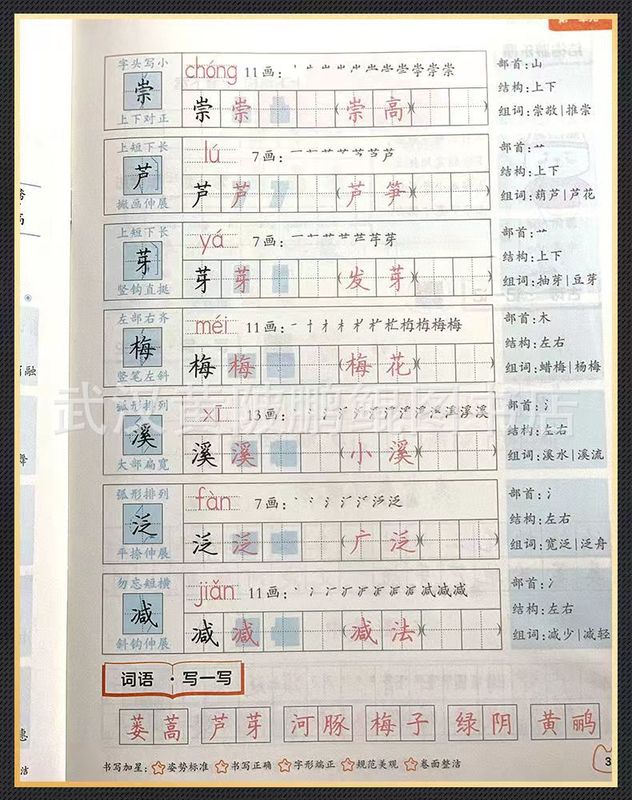 字头写小
崇
上下对正
chóng 11画:
崇 崇 (崇 高)( )
部首:山
结构:上下
组词:崇敬|推崇
上短下长
芦
撇画伸展
lú 7画:
芦 芦 (芦 笋)( )
部首:艹
结构:上下
组词:葫芦|芦花
上短下长
芽
竖钩直挺
yá 7画:
芽 芽 (发 芽)( )
部首:艹
结构:上下
组词:抽芽|豆芽
左部右齐
梅
竖笔左斜
méi 11画:
梅 梅 (梅 花)( )
部首:木
结构:左右
组词:蜡梅|杨梅
弧形排列
溪
大部扁宽
xī 13画:
溪 溪 (小 溪)( )
部首:氵
结构:左右
组词:溪水|溪流
弧形排列
泛
平捺伸展
fàn 7画:
泛 泛 (广 泛)( )
部首:氵
结构:左右
组词:宽泛|泛舟
勿忘短横
减
斜钩伸展
jiǎn 11画:
减 减 (减 法)( )
部首:冫
结构:左右
组词:减少|减轻
词语·写一写
蒌蒿 芦芽 河豚 梅子 绿阴 黄鹂
书写加星: 姿势标准 书写正确 字形端正 规范美观 卷面整洁
3